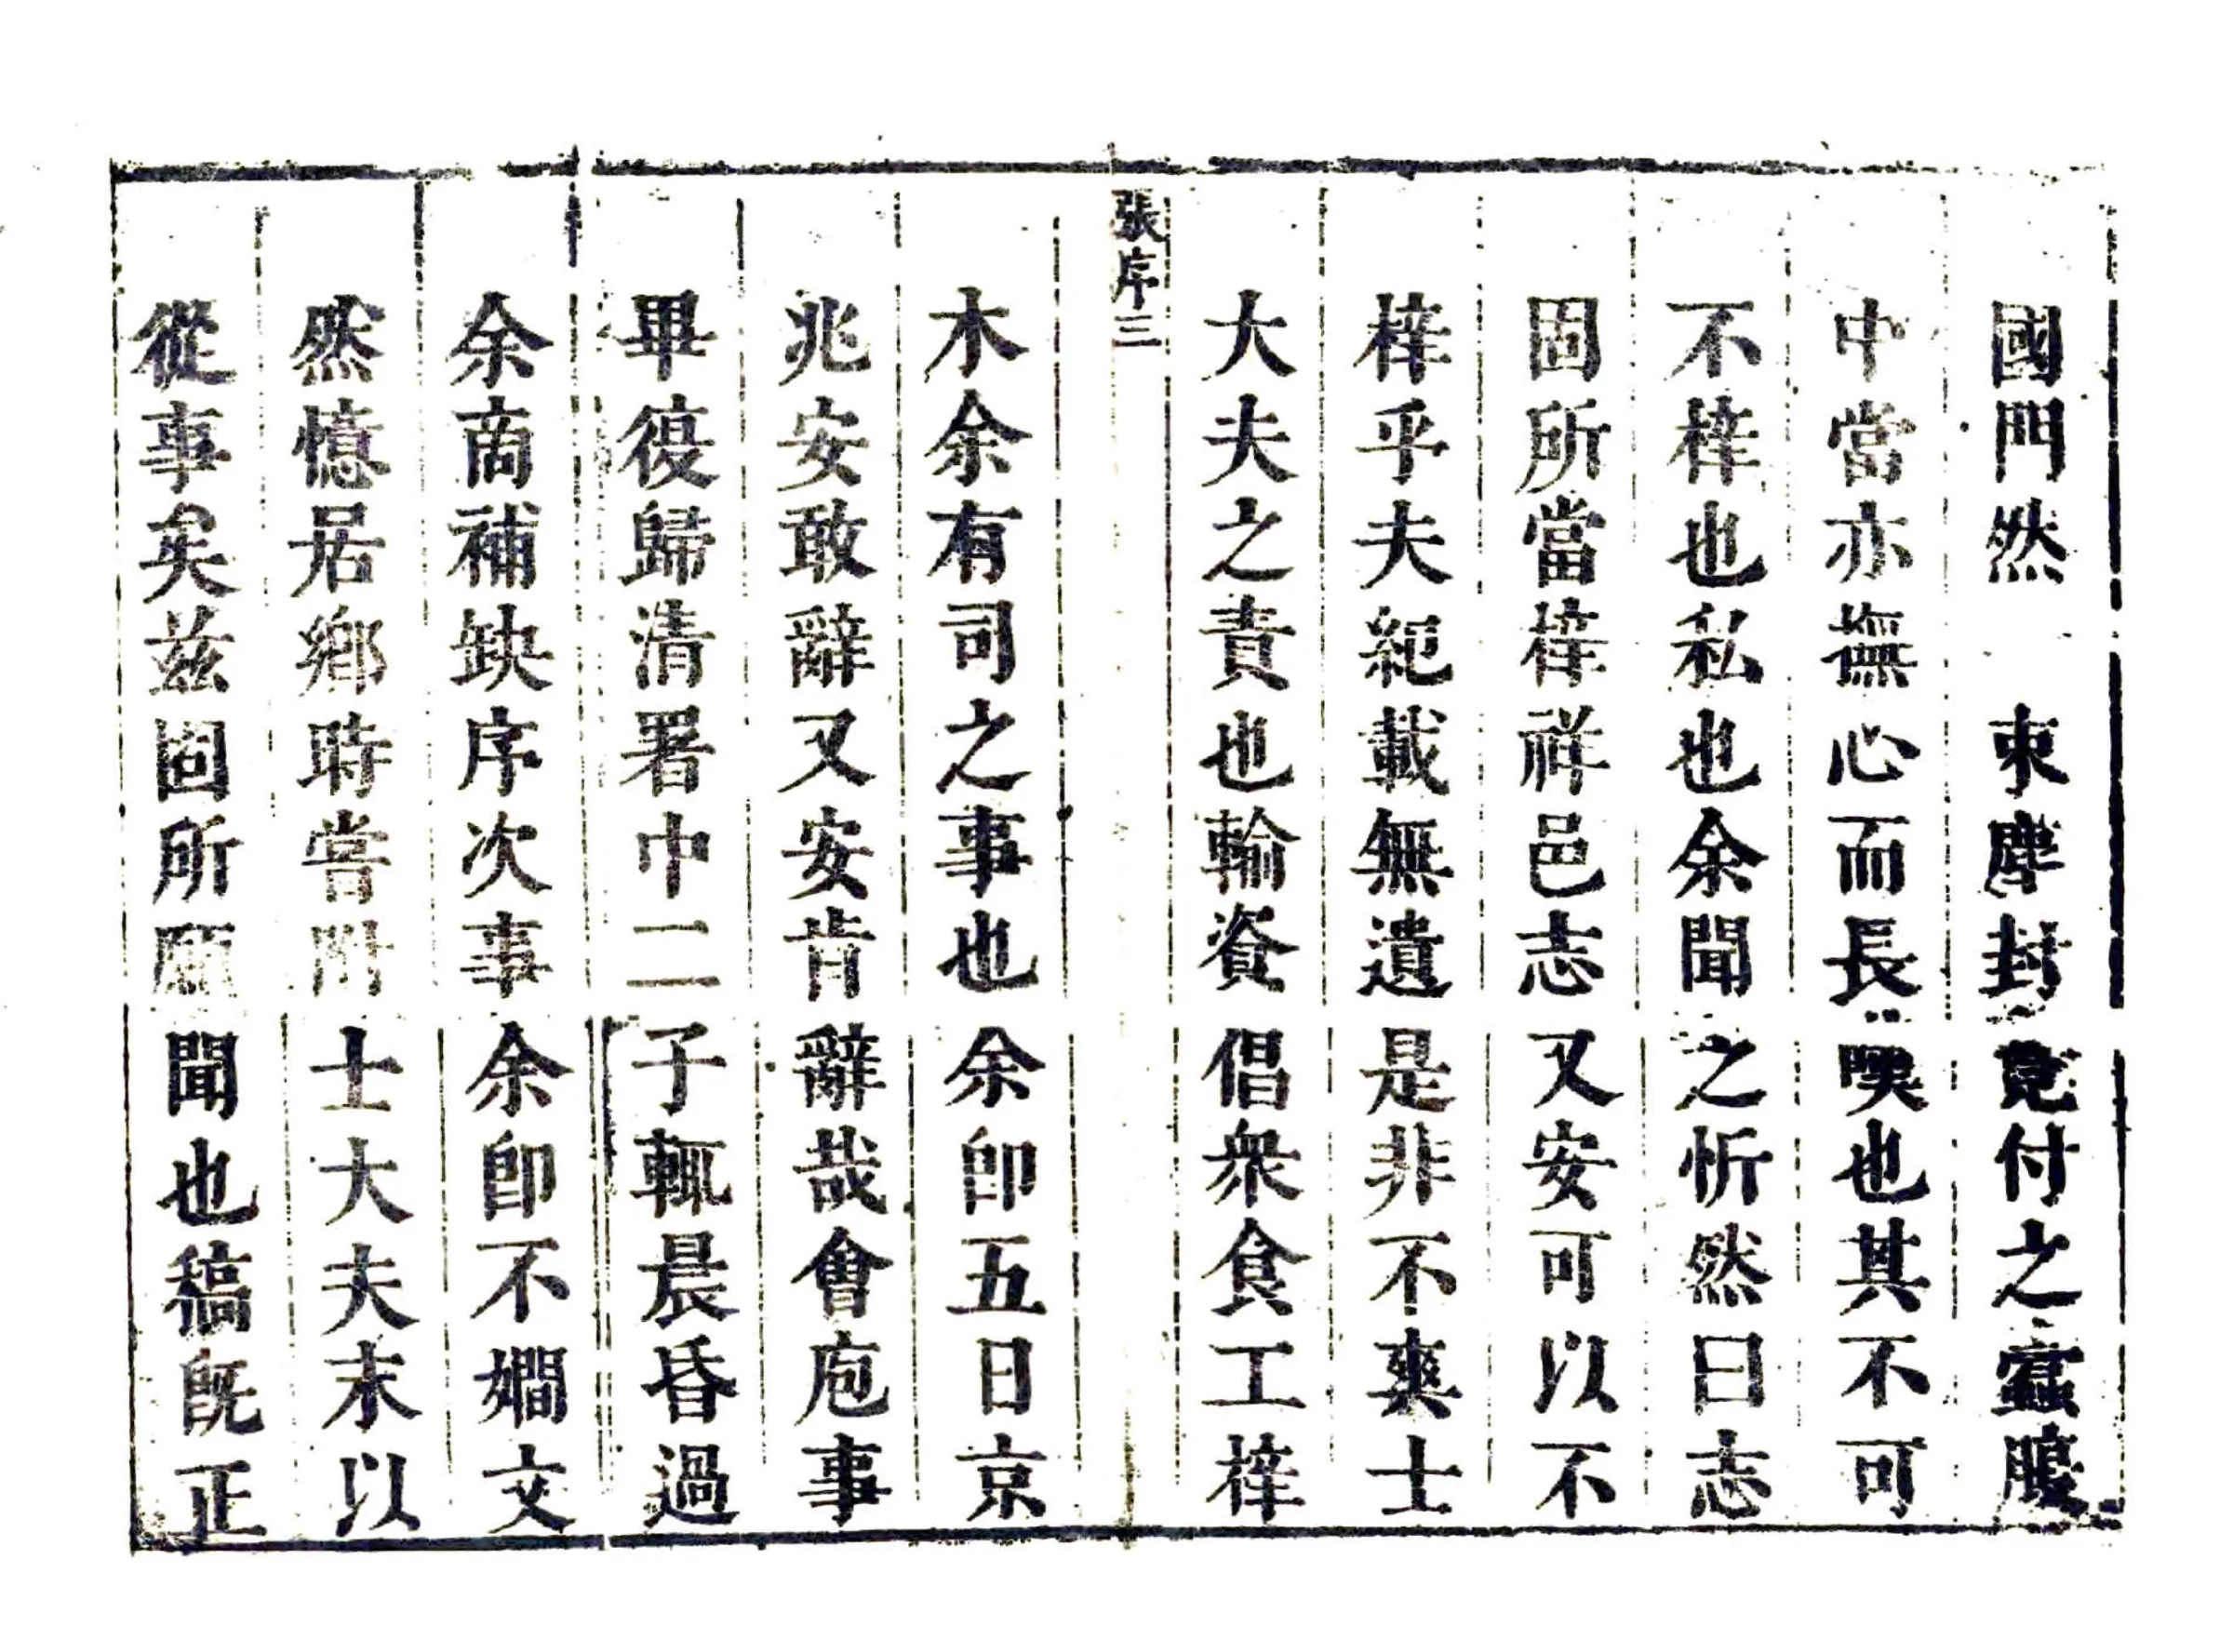 國門然 束庫封竟付之蠹腹
中當亦撫心而長嘆也其不可
不梓也私也余聞之忻然曰志
固所當梓祥邑志又安可以不
梓乎夫紀載無遺是非不爽士
大夫之責也輸資倡衆食工梓
張序三
木余有司之事也余卽五日京
兆安敢辭又安肯辭哉會庖事
畢役歸清署中二子輒晨昏過
余商補缺序次事余卽不嫺文
然憶居鄉時嘗附士大夫末以
從事矣茲固所願聞也稿既正